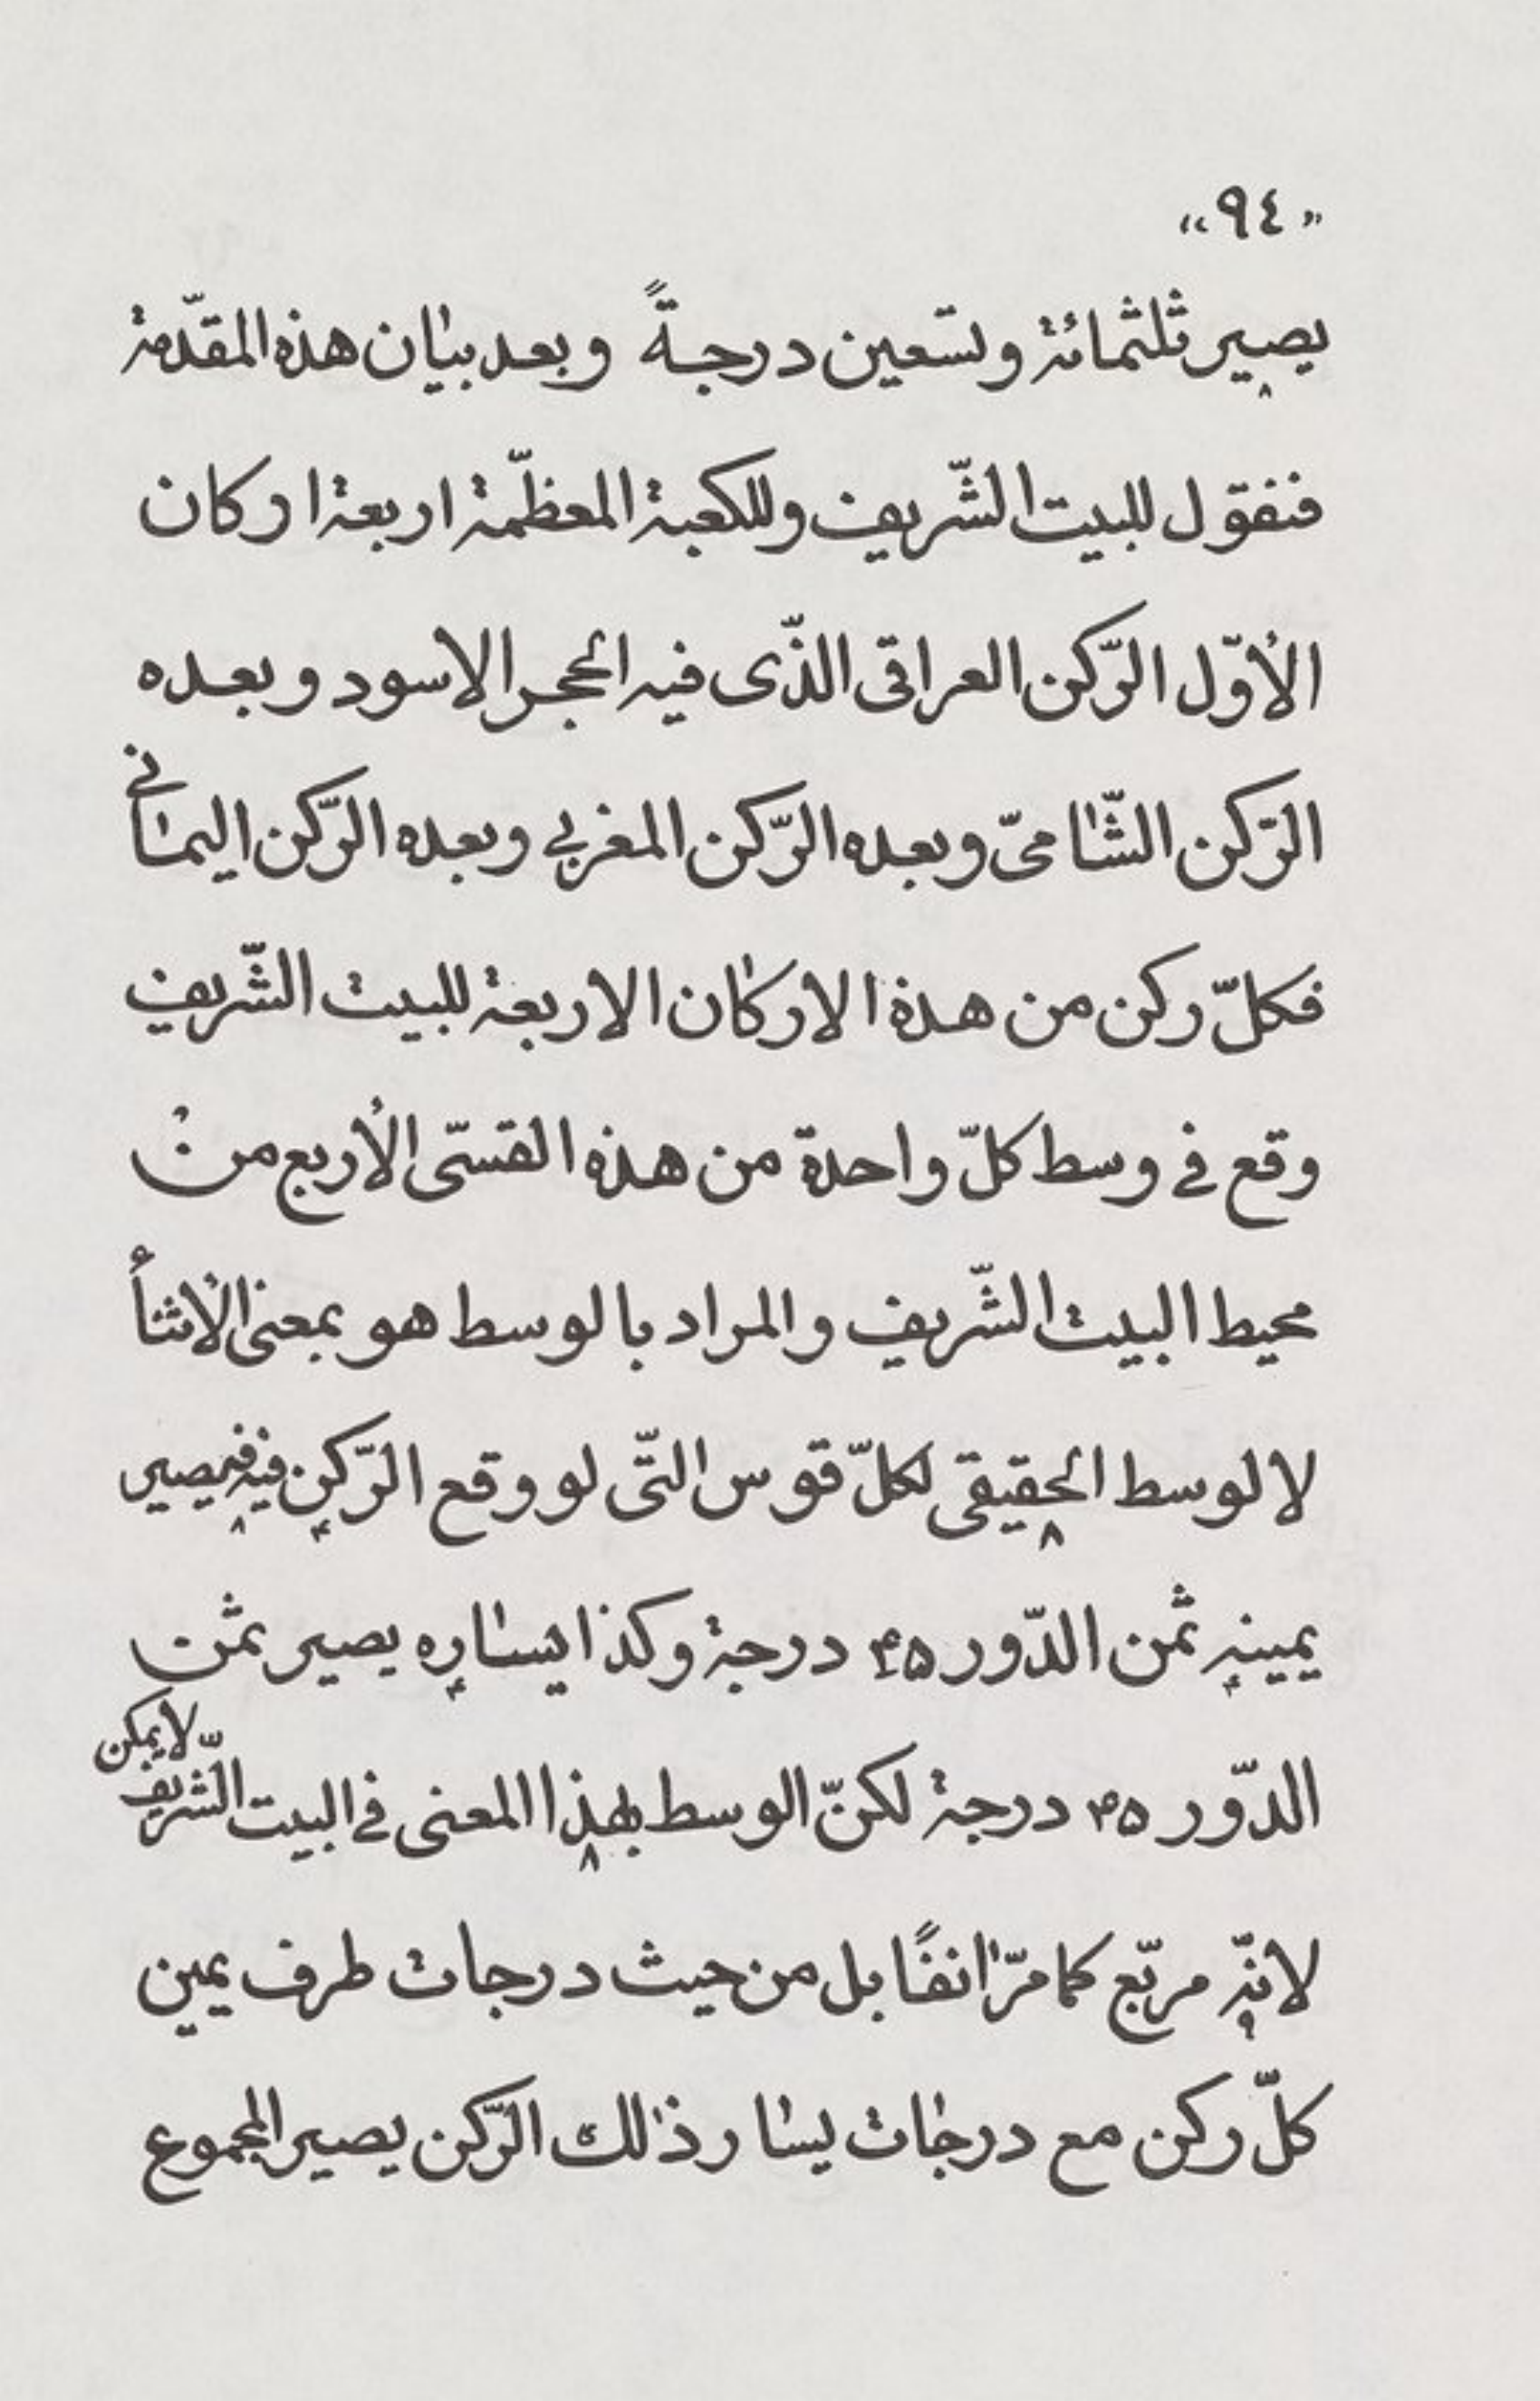 "٩٤"
يصير ثلثمائة وتسعين درجةً وبعد بيان هذه المقدّمة
فنقول للبيت الشّريف وللكعبة المعظّمة اربعة اركان
الأوّل الرّكن العراقى الذّى فيه الحجر الاسود وبعده
الرّكن الشّامىّ وبعده الرّكن المغربي وبعده الرّكن اليمانے
فكلّ ركن من هذه الاركان الاربعة للبيت الشّريف
وقع فے وسط كلّ واحدة من هذه القسّى الأربع من
محيط البيت الشّريف والمراد بالوسط هو بمعنى الأثنأ
لا لوسط الحقيقى لكلّ قوس التّى لو وقع الرّكن فيه فيصير
يمينه ثمن الدّور ۴۵ درجة وكذا يساره يصير ثمن
الدّور ۴۵ درجة لكنّ الوسط بهذا المعنى فے البيت الشّريف لا يمكن
لانّه مربّع كما مرّ انفًا بل من حيث درجات طرف يمين
كلّ ركن مع درجات يسار ذلك الرّكن يصير المجموع